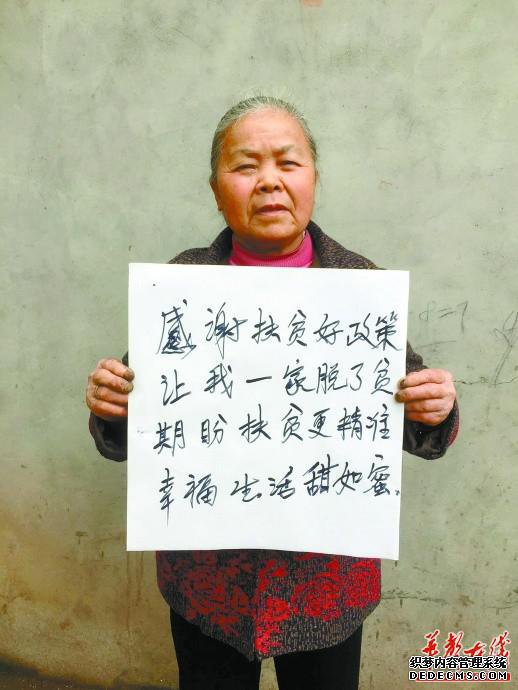 感谢扶贫好政策
让我一家脱了贫
期盼扶贫更精准
幸福生活甜如蜜。
华声在线
织梦内容管理系统
DEDECMS.COM